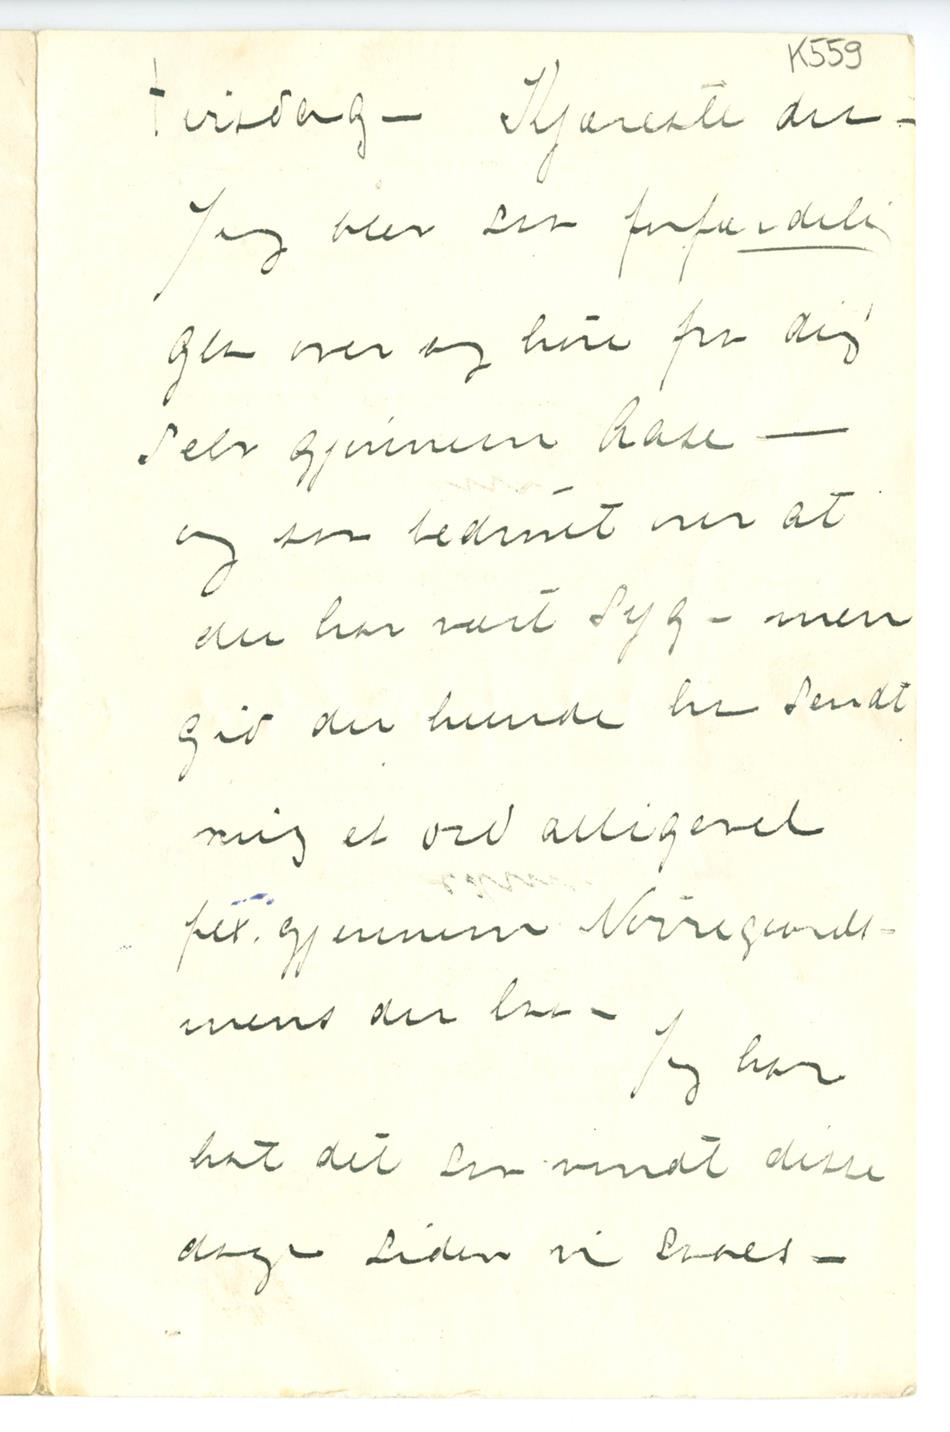 K559
tirsdag – Kjæreste du –
Jeg blev saa forfærdelig
gla over og høre fra dig
Selv gjennem Aase —
og saa bedrøvet over at
du har vært Syg – men
gid du kunde ha Sendt
mig et ord alligevel
fex. gjennem Nørregaards –
mens du laa – Jeg har
hat det saa vondt disse
dage siden vi saaes –